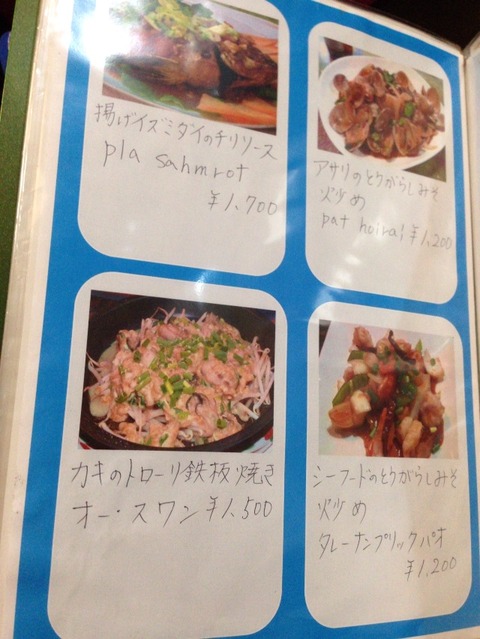 揚げイズミダイのチリソース
pla sahmrot
￥1,700
アサリのとうがらしみそ
炒め
pat hoirai ￥1,200
カキのトローリ鉄板焼き
オー・スワン ￥1,500
シーフードのとうがらしみそ
炒め
タレーナンプリックパオ
￥1,200